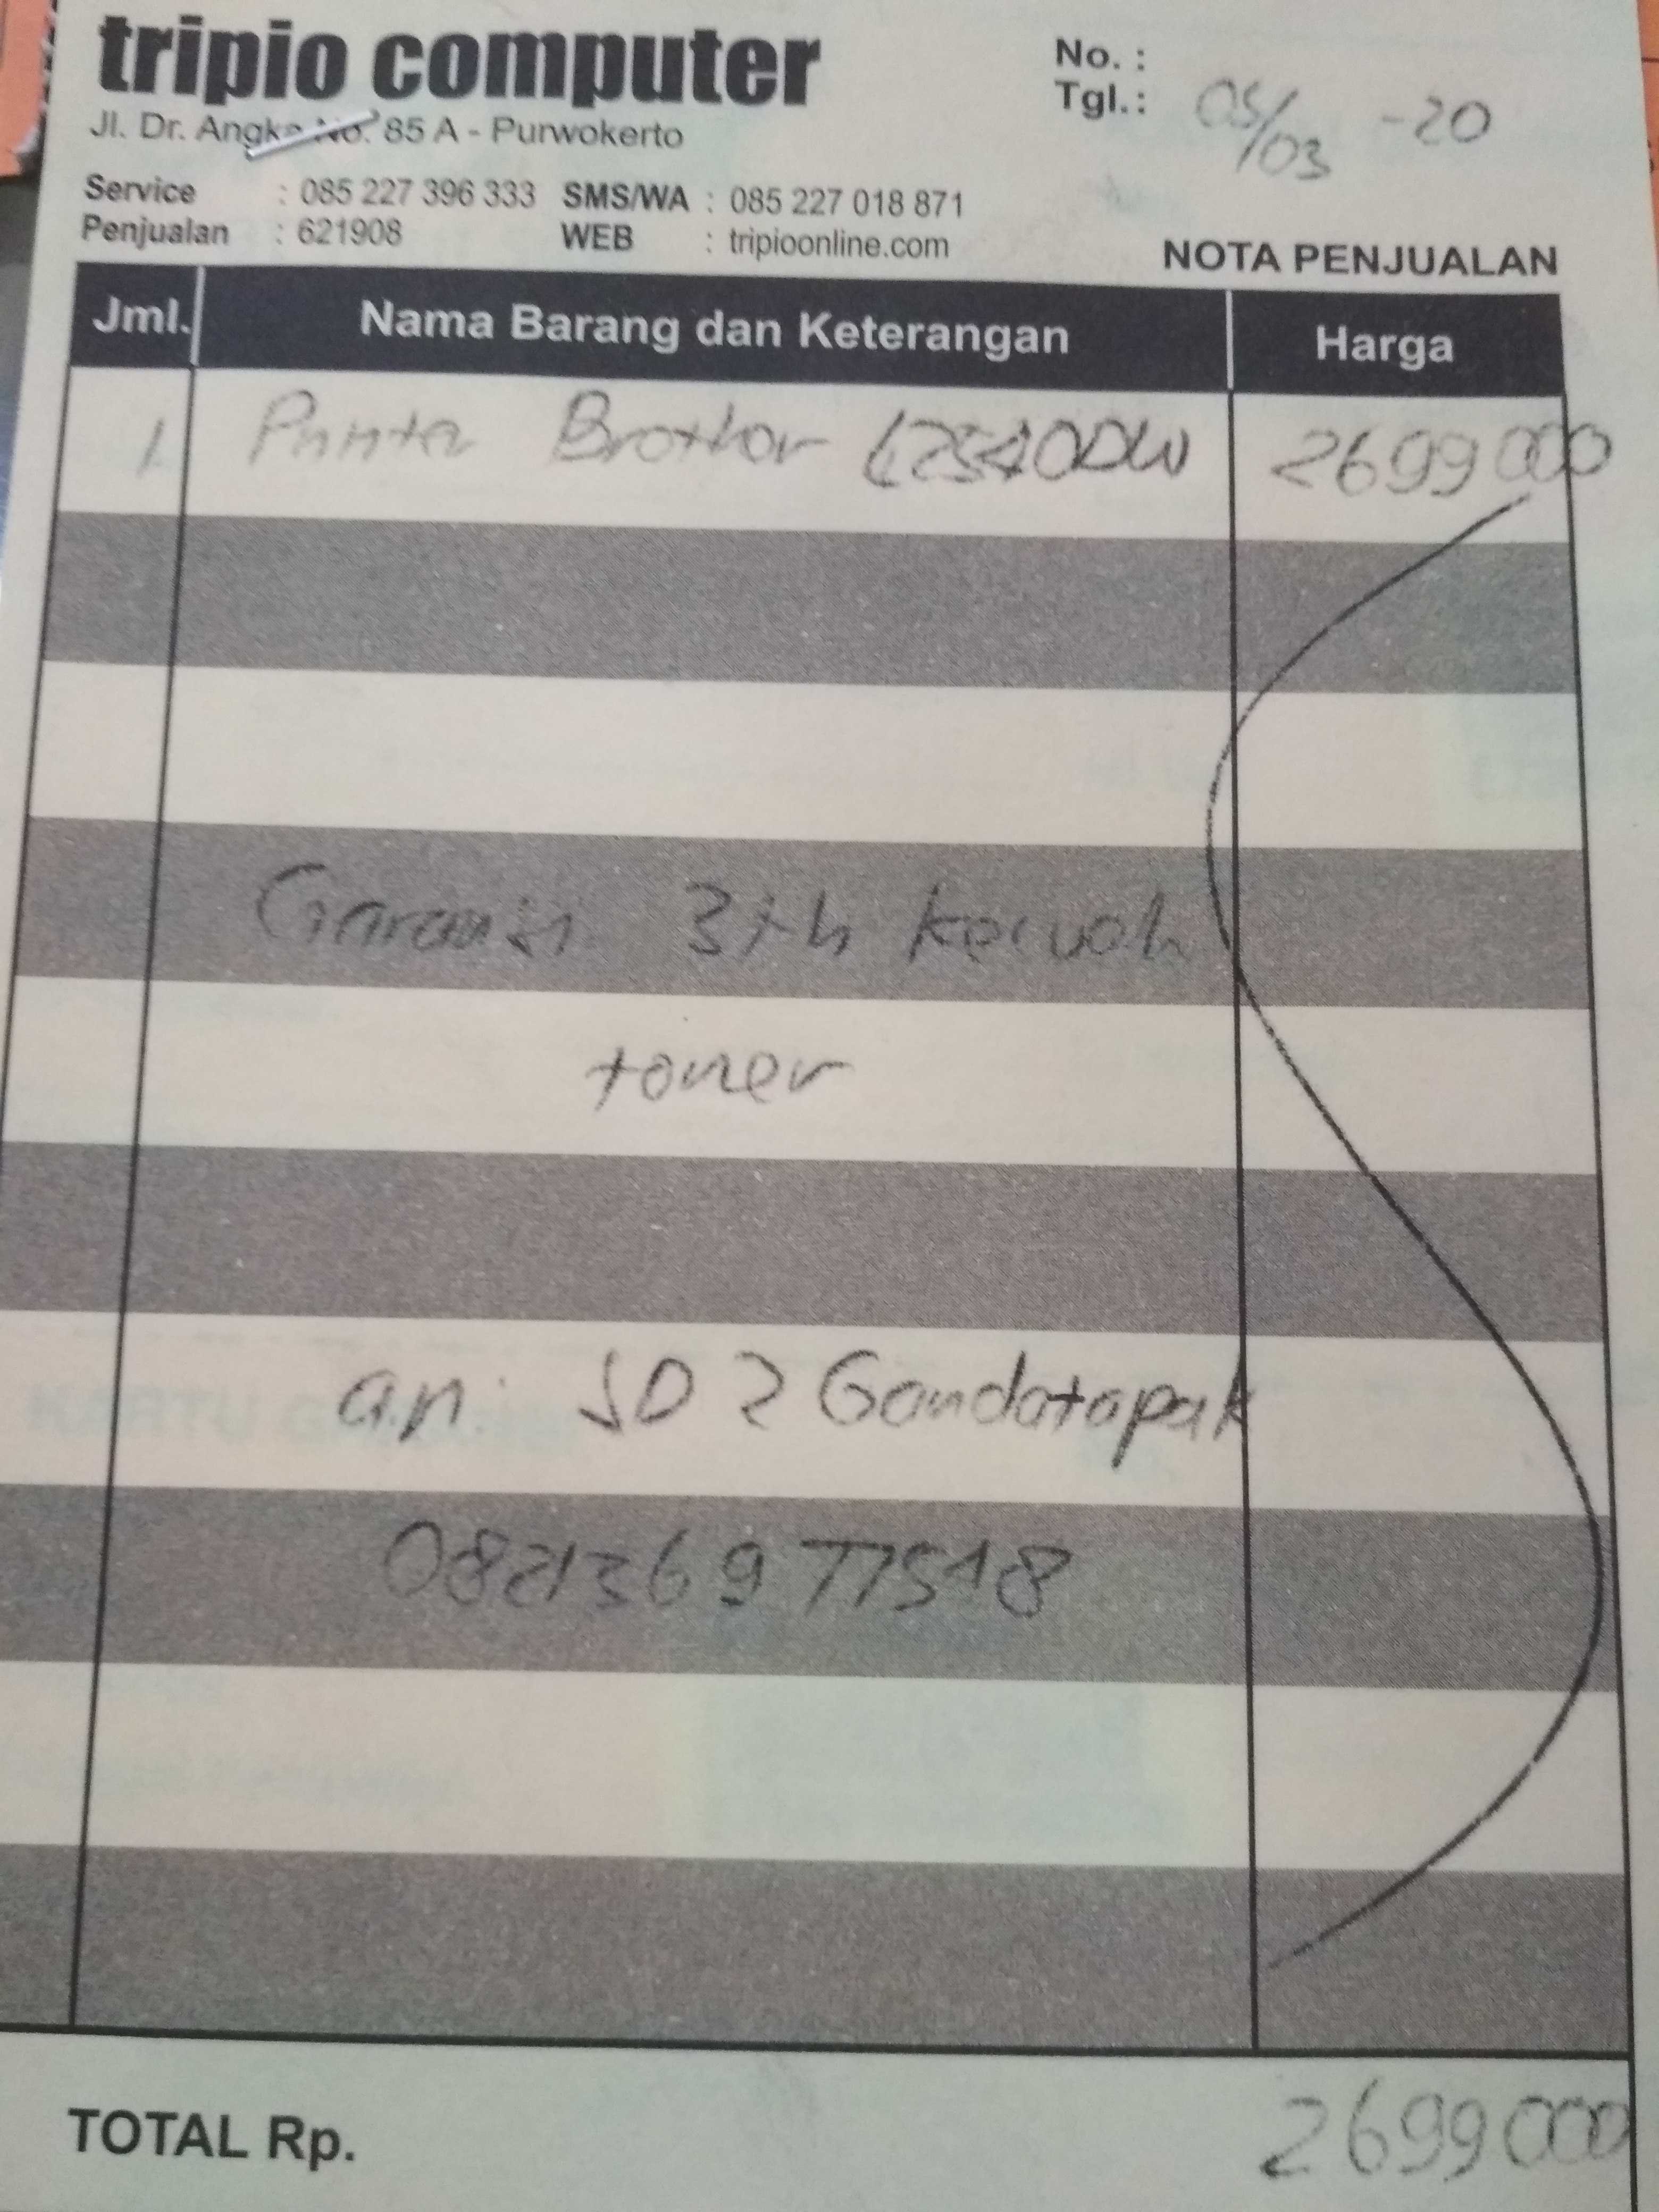 tripio computer
Jl. Dr. Angka No. 85 A - Purwokerto
No. :
Tgl. : 05/03 -20
Service : 085 227 396 333 SMS/WA : 085 227 018 871
Penjualan : 621908 WEB : tripioonline.com
NOTA PENJUALAN
Jml. Nama Barang dan Keterangan Harga
1 Printer Brother L2540DW 2699000
Garansi 3th kecuali
toner
a.n. SD 2 Gandatapak
082136977518
TOTAL Rp. 2699000